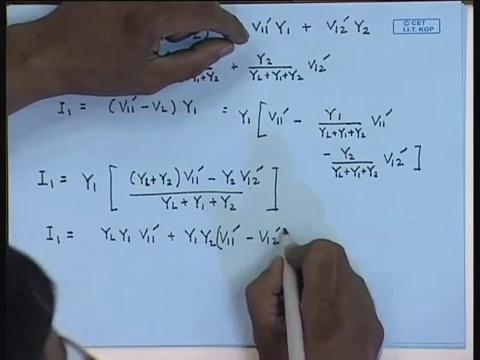 V₁₁′ Y₁ + V₁₂′ Y₂
© CET
I.I.T. KGP
Y₁+Y₂ + Y₂/(Y_L+Y₁+Y₂) V₁₂′
I₁ = (V₁₁′ − V_L) Y₁ = Y₁ [ V₁₁′ − Y₁/(Y_L+Y₁+Y₂) V₁₁′
− Y₂/(Y_L+Y₁+Y₂) V₁₂′ ]
I₁ = Y₁ [ ((Y_L+Y₂) V₁₁′ − Y₂ V₁₂′)/(Y_L + Y₁ + Y₂) ]
I₁ = Y_L Y₁ V₁₁′ + Y₁ Y₂ (V₁₁′ − V₁₂′